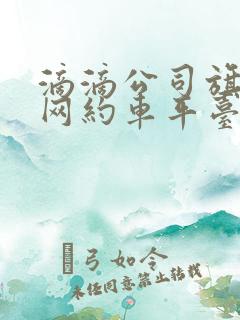 滴滴公司旗
网约车车臺
弓如令
未经同意禁止转载